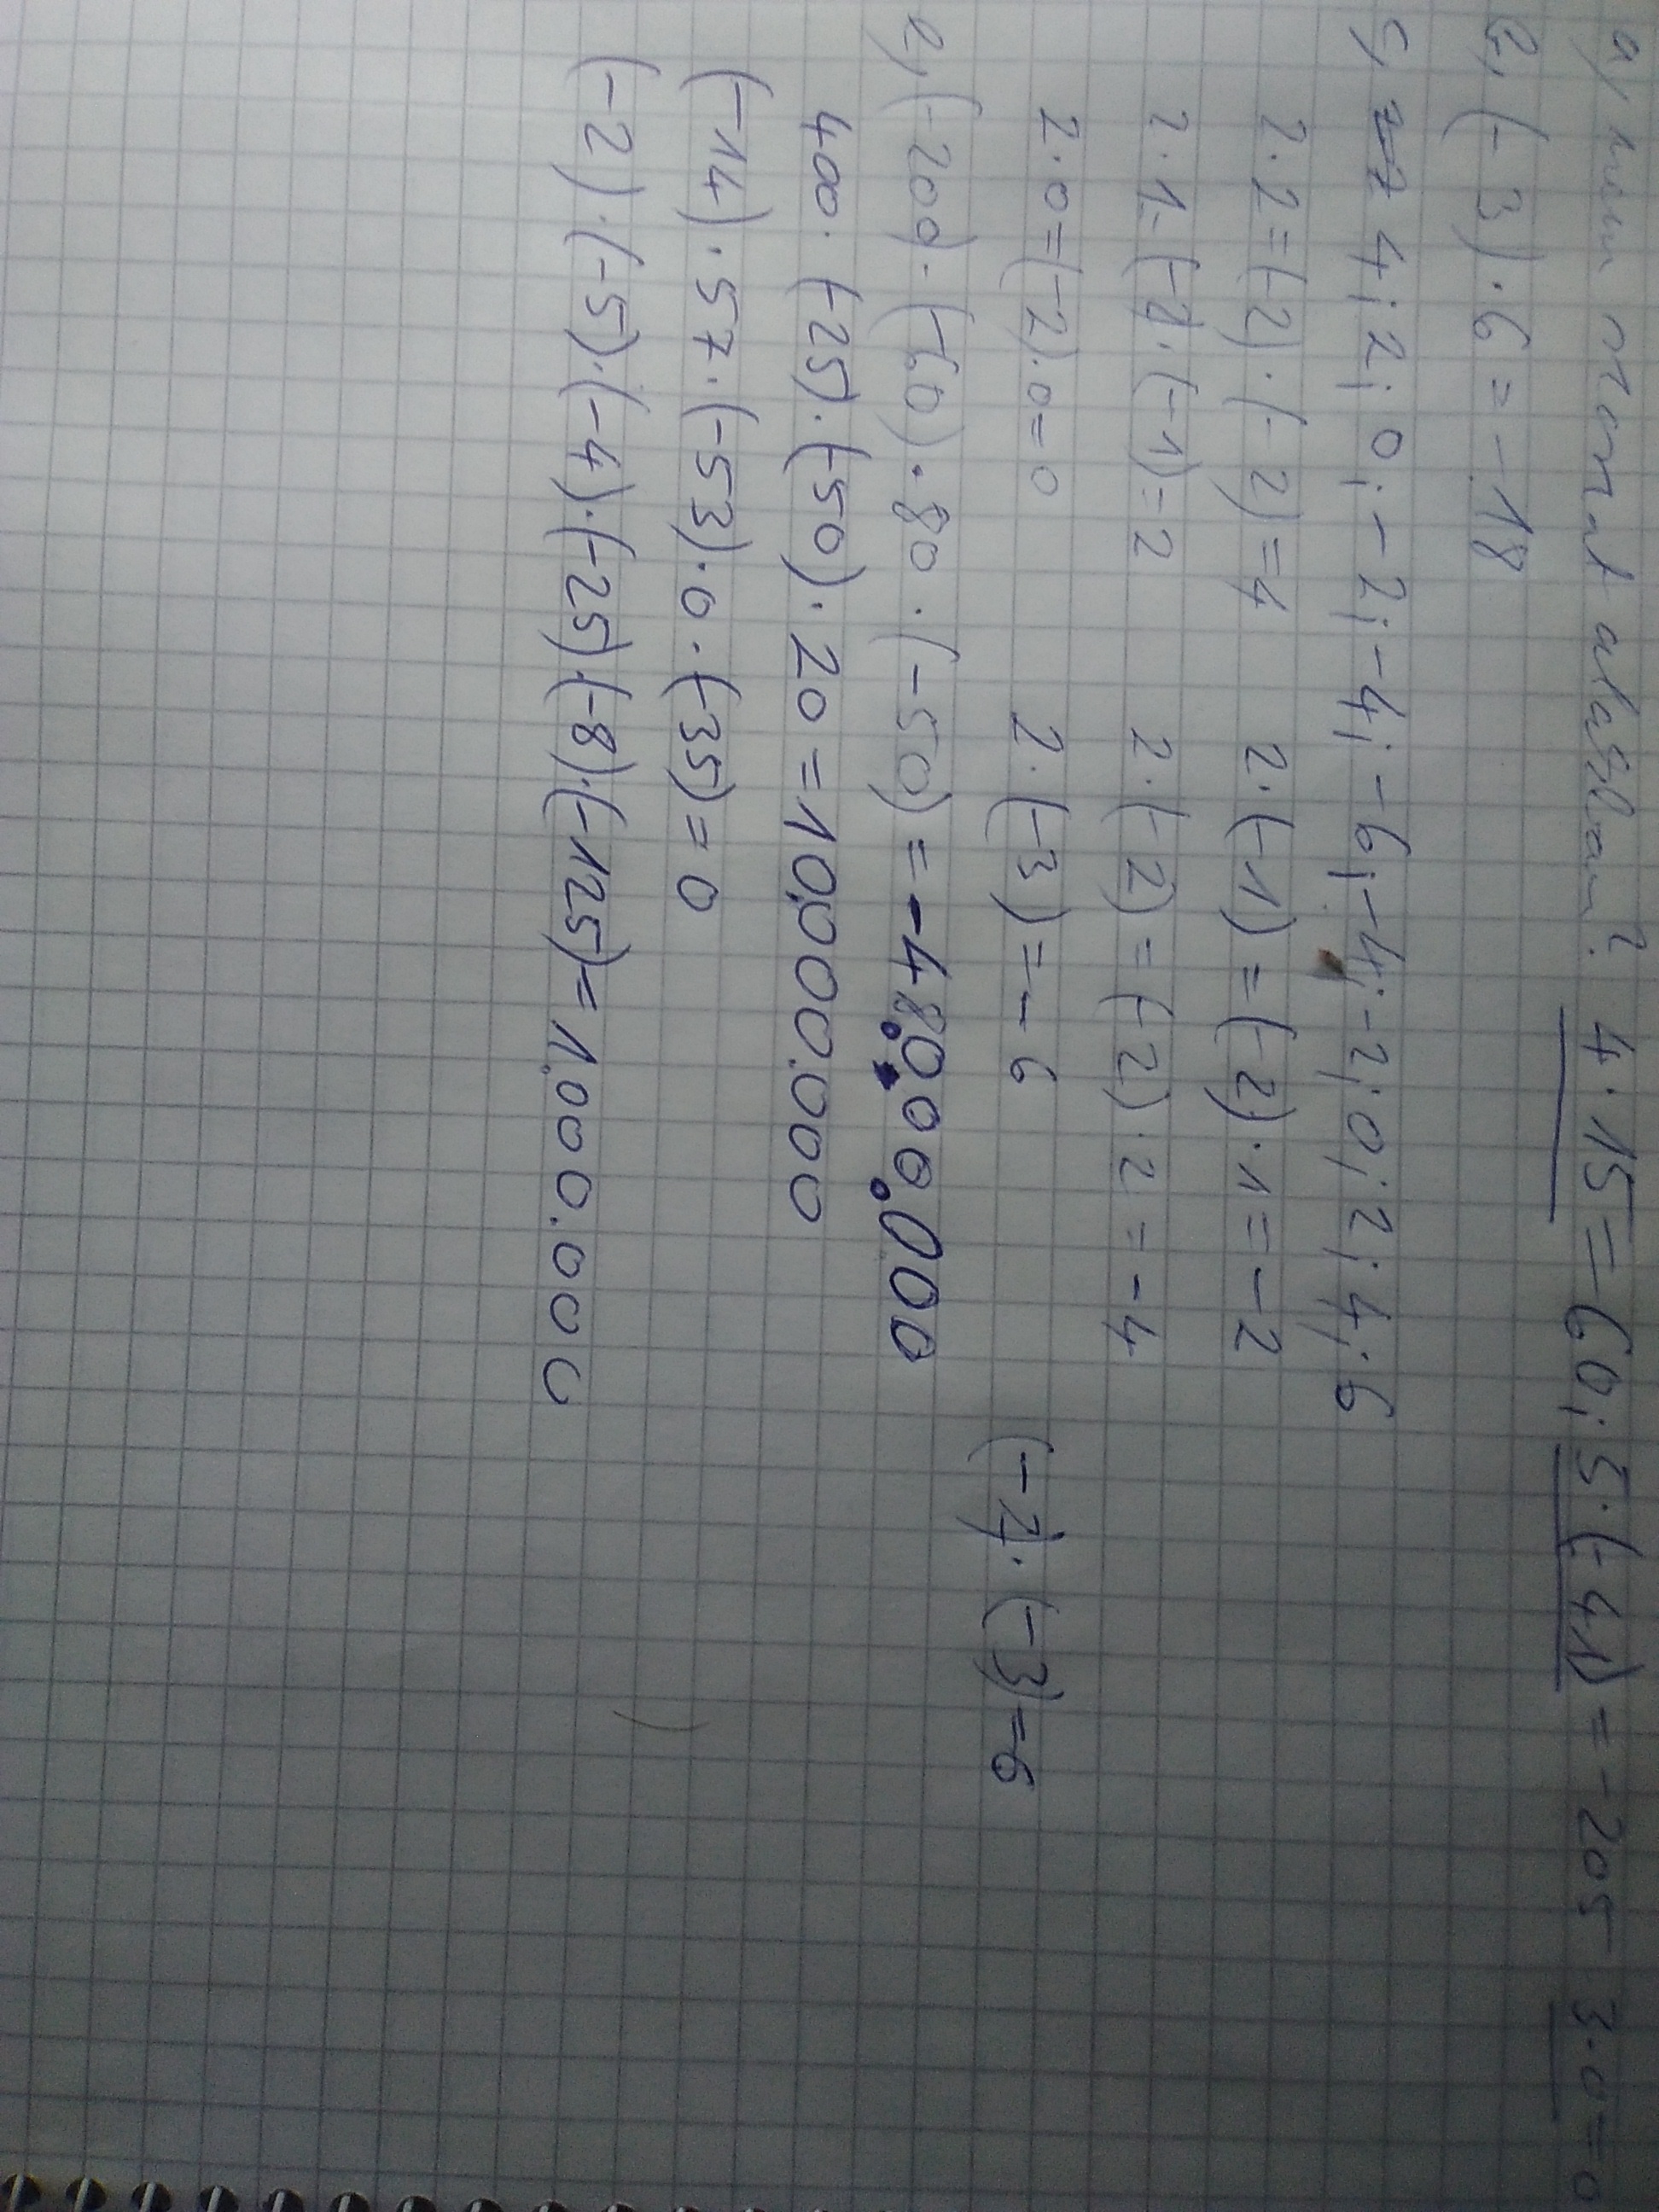 a, szorzat alakban? 4·15=60; 5·(-41)=-205 3·0=0
2, (-3)·6=-18
4; 2; 0; -2; -4; -6; -4; -2; 0; 2; 4; 6
2·2=(-2)·(-2)=4 2·(-1)=(-2)·1=-2
2·1=(-2)·(-1)=2 2·(-2)=(-2)·2=-4
2·0=(-2)·0=0 2·(-3)=-6 (-2)·(-3)=6
e, (-200)·(-60)·80·(-50)=-48.000.000
400·(-25)·(-50)·20=10.000.000
(-14)·57·(-53)·0·(-35)=0
(-2)·(-5)·(-4)·(-25)·(-8)·(-125)=1.000.000